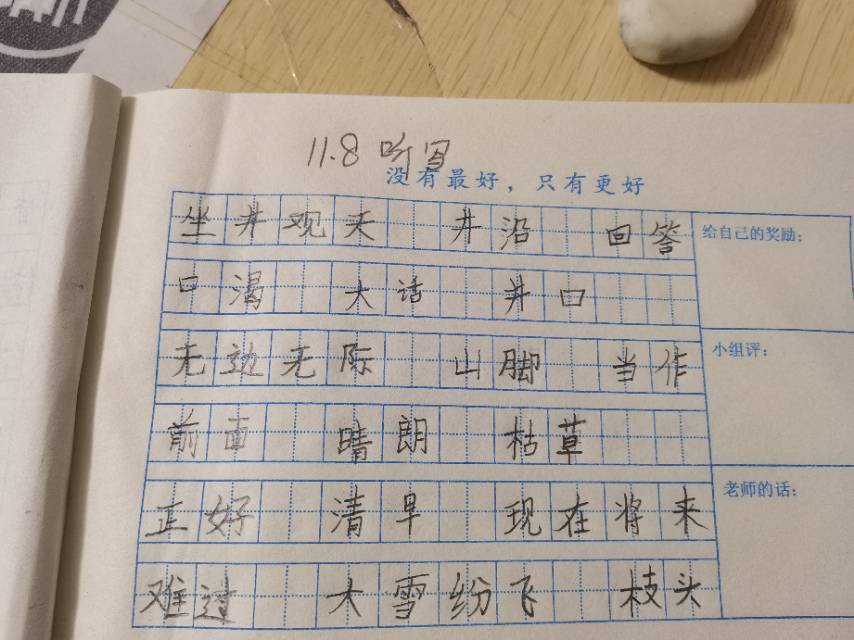 11.8 听写
没有最好，只有更好
坐井观天 井沿 回答
给自己的奖励：
口渴 大话 井口
无边无际 山脚 当作
小组评：
前面 晴朗 枯草
正好 清早 现在将来
老师的话：
难过 大雪纷飞 枝头